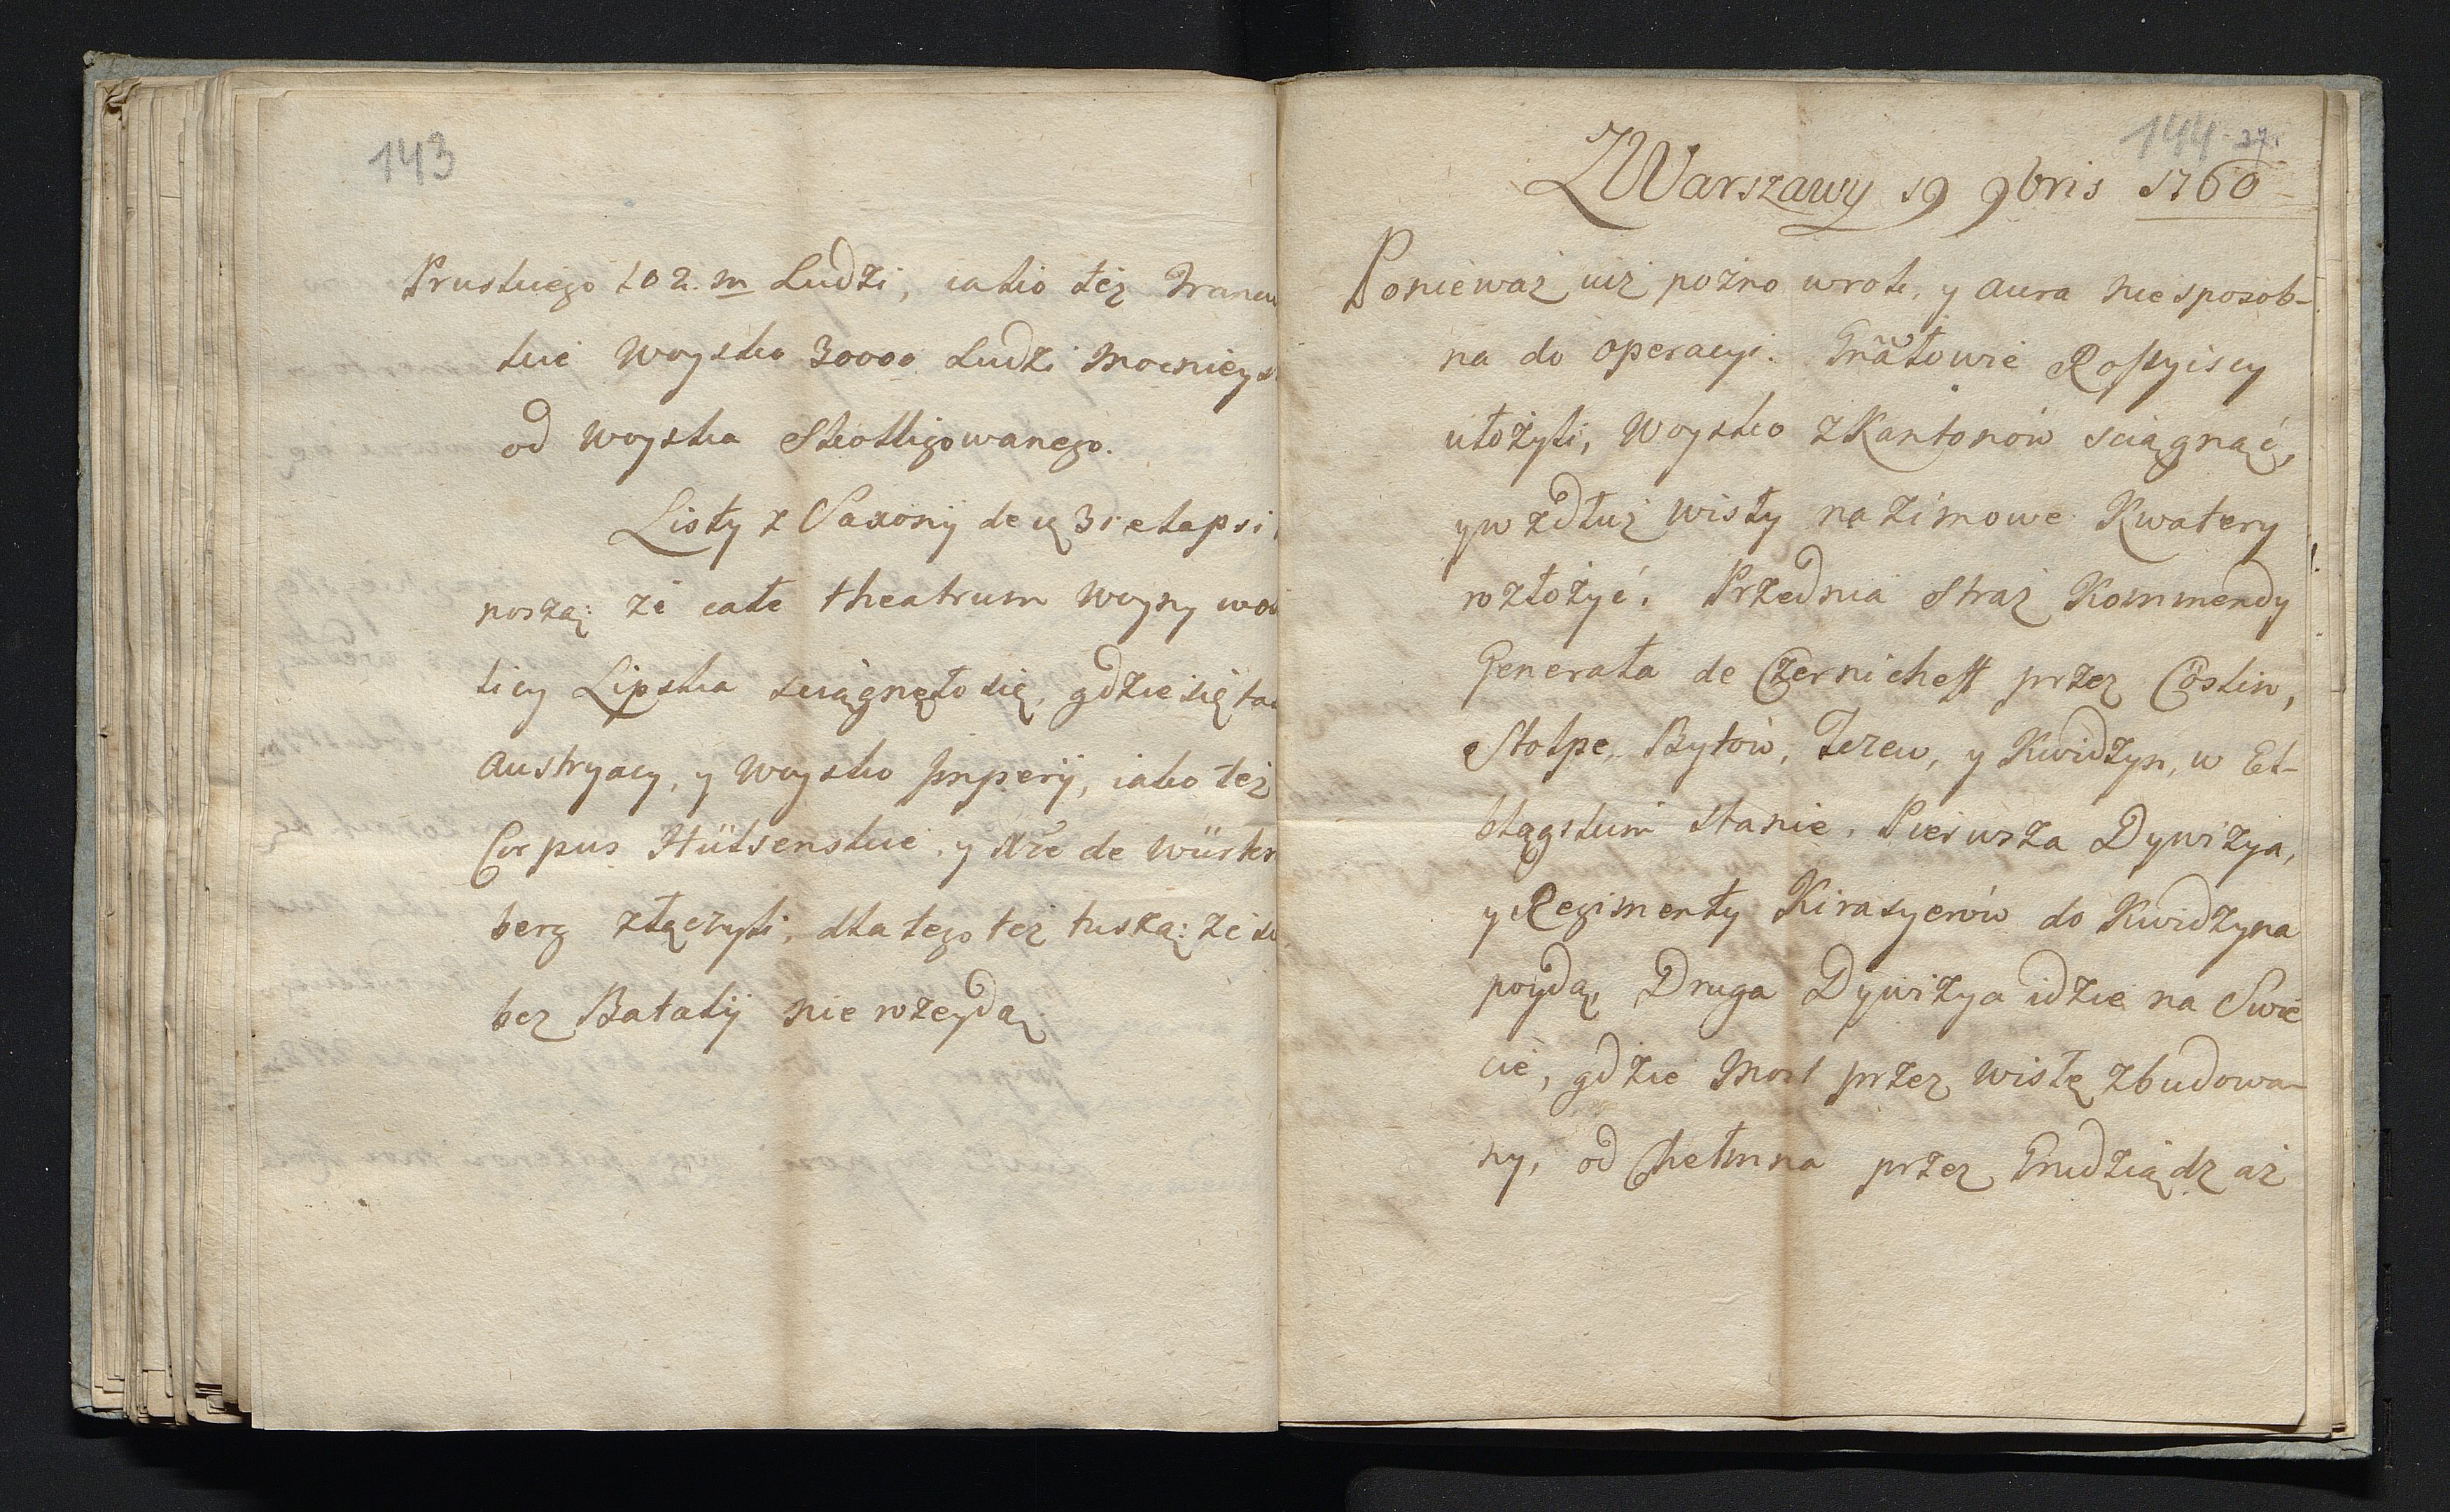 143
Pruskiego 102. m Ludzi, iako też Francu
skie Woysko 30000 Ludzi Mocnieys
od Woyska Skolligowanego.
Listy z Saxonij de 31 elapsi
noszą: że całe theatrum Woyny wok
licy Lipska sciągnęło się, gdzie się ta
Austryacy, y Woysko Jmperij, iako też
Corpus Hülsenskie y Xże de Würtem
berg złączyli, dla tego też tuszą: że
bez Batalij nie rozeydą
144 37.
Z Warszawy 19 9bris 1760
Ponieważ iuż pożno w rok, y aura niesposob-
na do operacyi. Gnałowie Rossyiscy
ułożyli, Woysko z Kantonow sciągnąć,
y w zdłuż wisły na zimowe Kwatery
rozłożyć. Przednia Straż Kommendy
Generała de Czernicheff przez Cöslin,
Stolpe, Bytow, Tczew, y Kwidzyn, w El-
blągskim stanie. Pierwsza Dywizya,
y Regimenty Kirasyerow do Kwidzyna
poydą, Druga Dywizya idzie na Swie
cie, gdzie Most przez wisłę zbudowa-
ny, od Chełmna przez Grudziądz aż